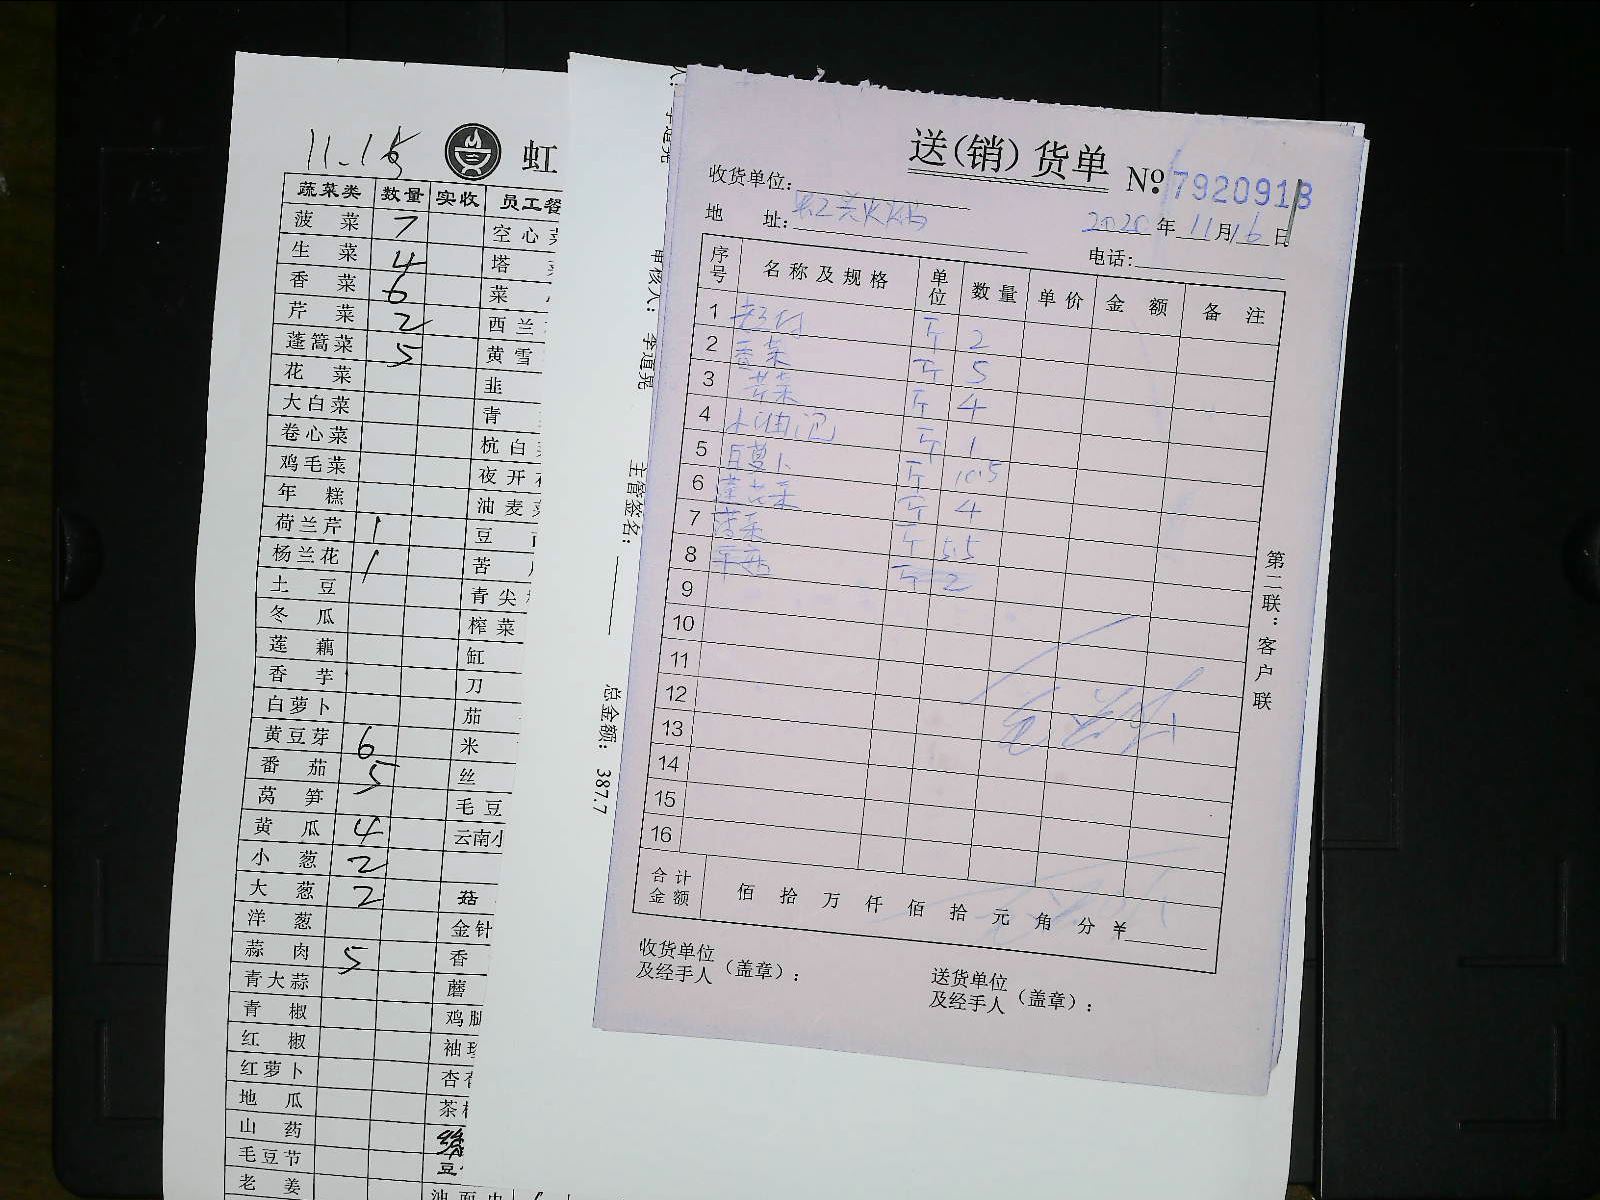 11.16
虹
蔬菜类 数量 实收 员工餐
菠菜 7 空心菜
生菜 4 塔
香菜 6 菜
芹菜 2 西兰
蓬篙菜 5 黄雪
花菜 韭
大白菜 青
卷心菜 杭白
鸡毛菜 夜开
年糕 油麦菜
荷兰芹 1 豆
杨兰花 1 苦
土豆 青尖
冬瓜 榨菜
莲藕 缸
香芋 刀
白萝卜 茄
黄豆芽 6 米
番茄 5 丝
莴笋 毛豆
黄瓜 4 云南小
小葱 2
大葱 2 菇
洋葱 金针
蒜肉 5 香
青大蒜 蘑
青椒 鸡腿
红椒 袖珍
红萝卜 杏
地瓜 茶
山药
毛豆节 豆
老姜
审核人: 李道晃
主管签名:
总金额: 387.7
送(销)货单 No 7920918
收货单位:
地址: 虹兴火锅
2020年11月16日
电话:
序号 名称及规格 单位 数量 单价 金额 备注
1 斤 2
2 香菜 斤 5
3 芹菜 斤 4
4 小油泡 斤 1
5 白萝卜 斤 10.5
6 斤 4
7 菠菜 斤 5.5
8 斤 2
9
10
11
12
13
14
15
16
合计金额 佰 拾 万 仟 佰 拾 元 角 分 ¥
收货单位及经手人(盖章):
送货单位及经手人(盖章):
第二联:客户联